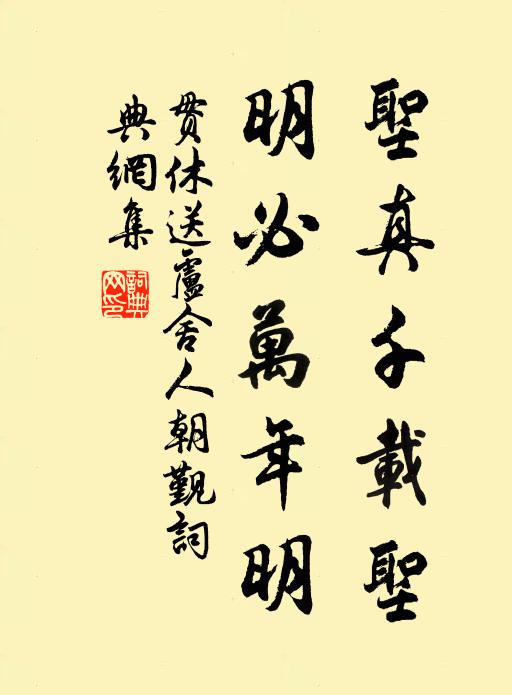 聖真千載聖
明必萬年明
貫休送盧舍人朝覲詞
典網集
詞典網印